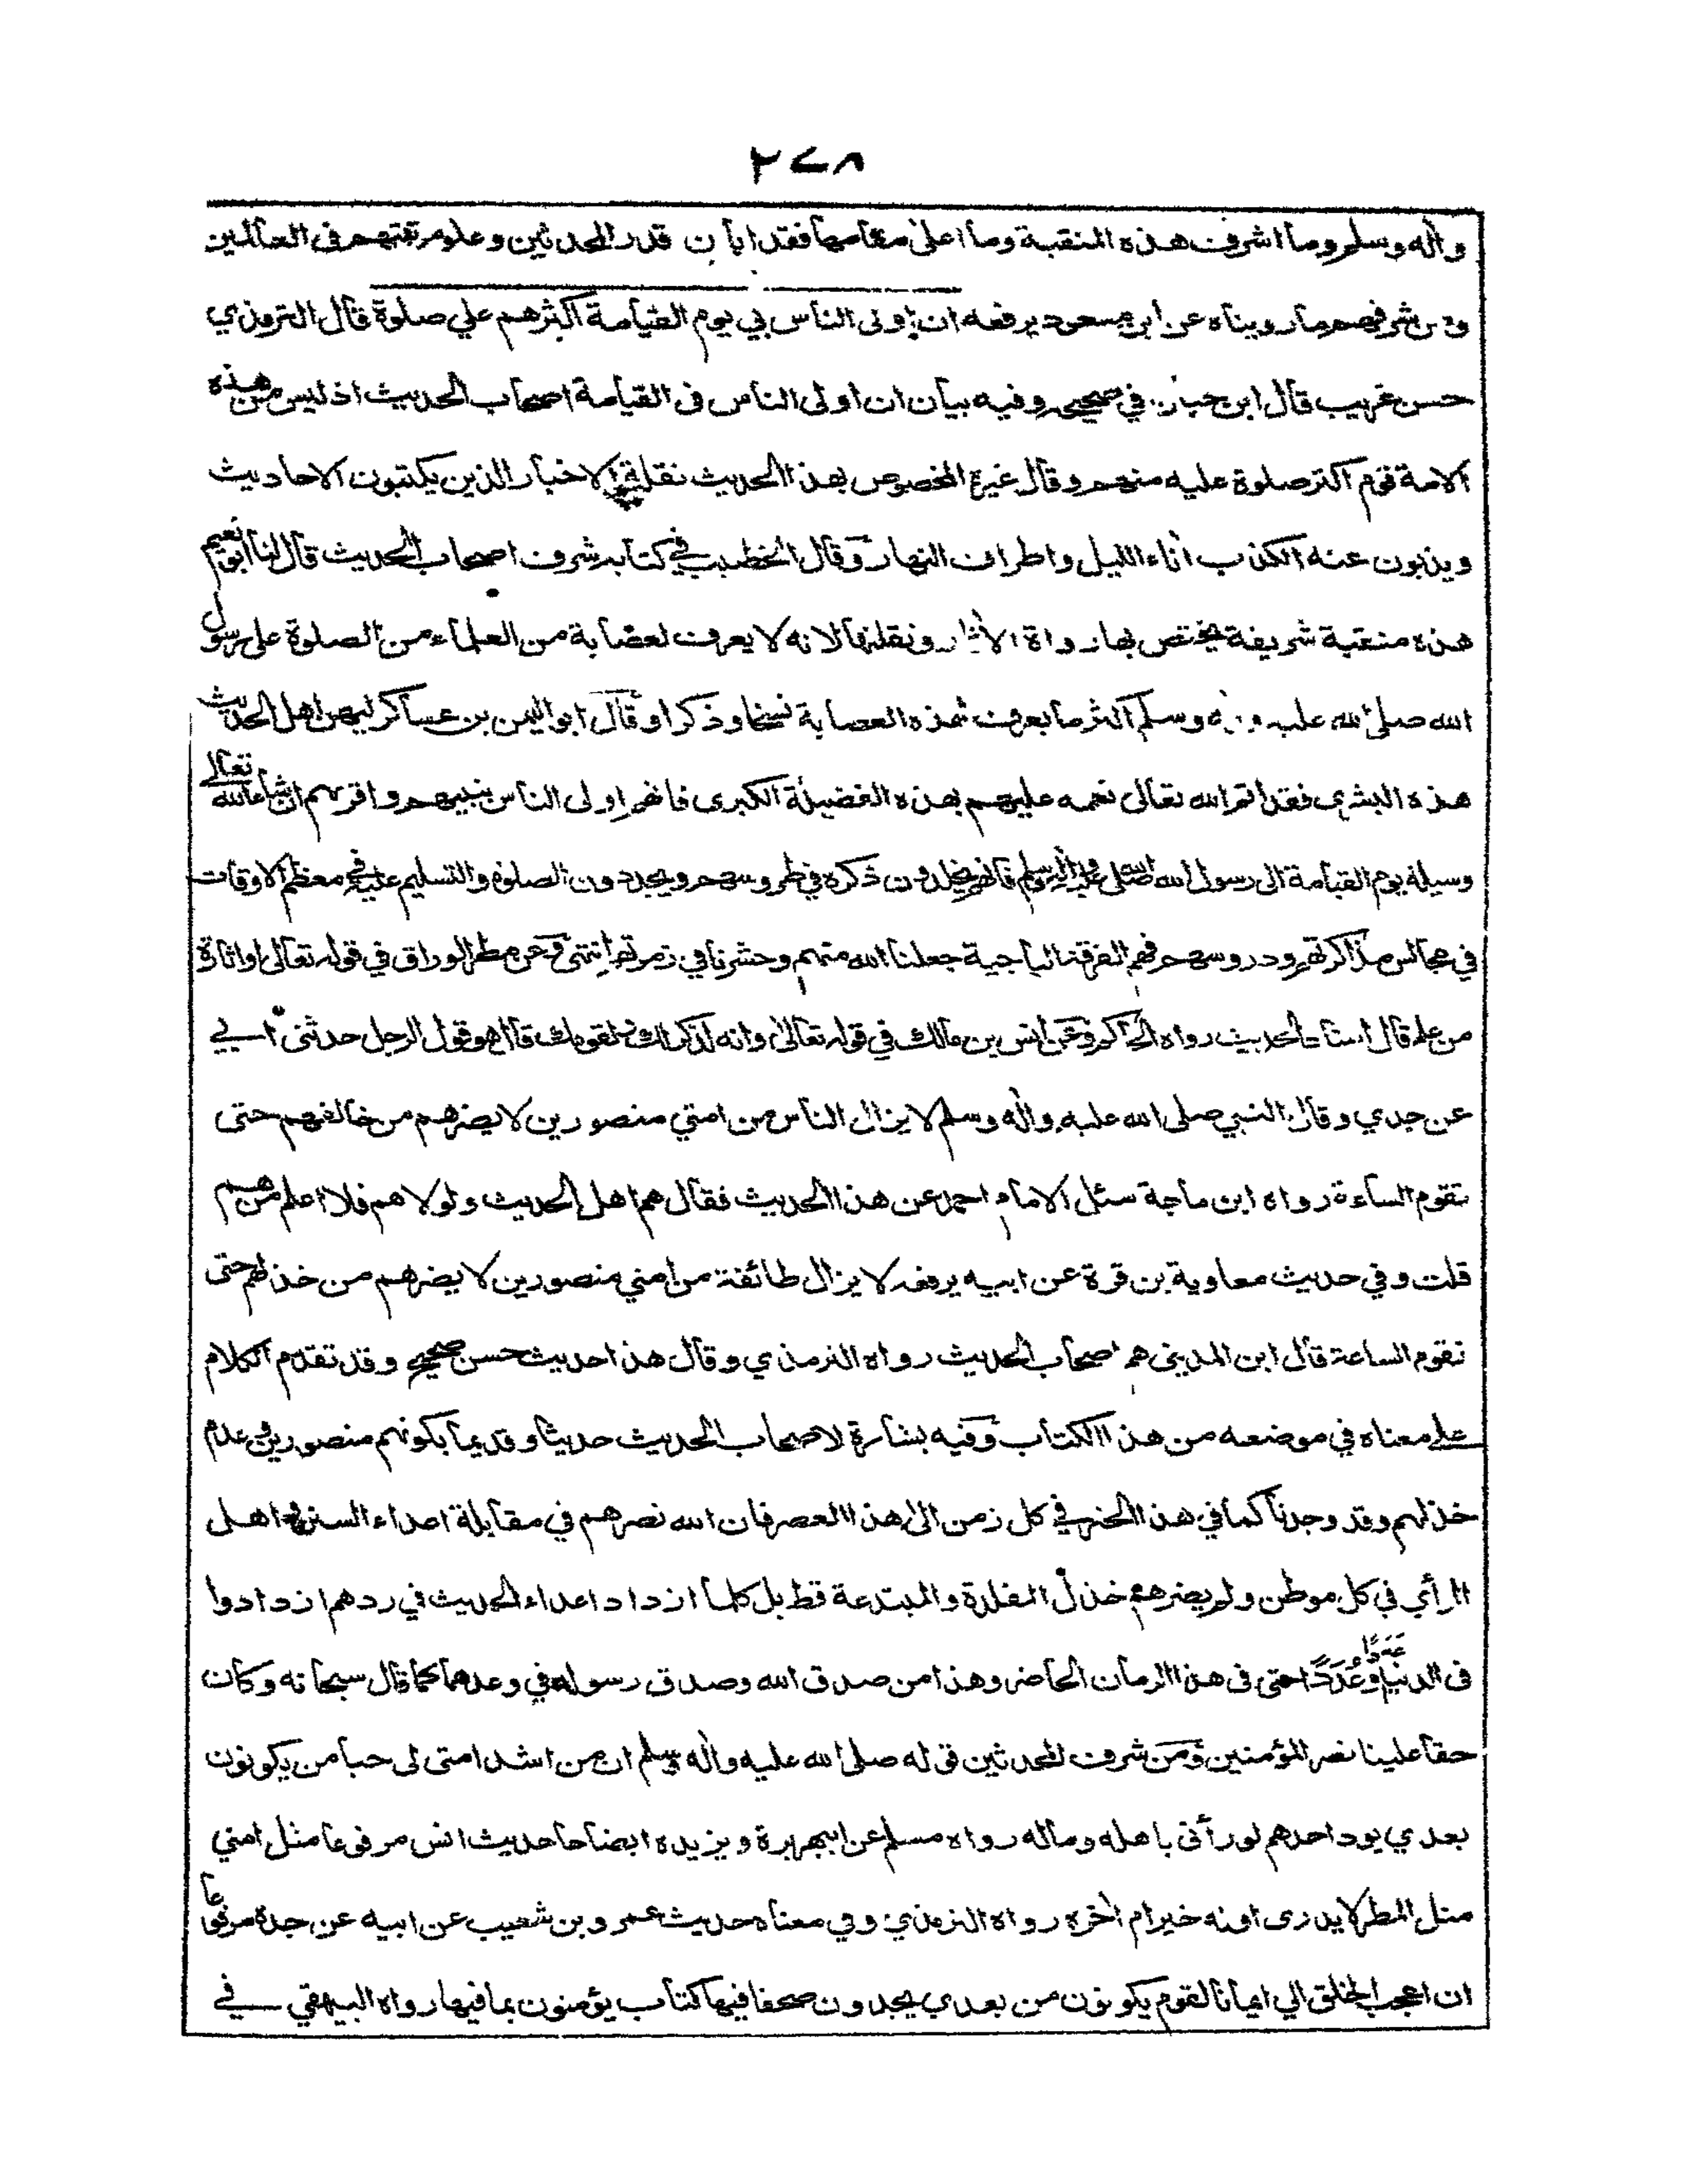 ٢٧٨
وآله وسلم وما اشرف هذه المنقبة وما اعلى مقامها فقد ابان قدر المحدثين وعلو مرتبتهم في العالمين
ومن شرفهم ما رويناه عن ابن مسعود يرفعه ان اولى الناس بي يوم القيامة اكثرهم علي صلوة قال الترمذي
حسن غريب قال ابن حبان في صحيحه وفيه بيان ان اولى الناس في القيامة اصحاب الحديث اذ ليس من هذه
الامة قوم اكثر صلوة عليه منهم وقال غيره المخصوص بهذا الحديث نقلة الاخبار الذين يكتبون الاحاديث
ويذبون عنه الكذب آناء الليل واطراف النهار وقال الخطيب في كتابه شرف اصحاب الحديث قال لنا ابو نعيم
هذه منقبة شريفة يختص بها رواة الآثار ونقلتها لانه لا يعرف لعصابة من العلماء من الصلوة على رسول
الله صلى الله عليه وآله وسلم اكثر ما يعرف لهذه العصابة نسخا وذكرا وقال ابو اليمن بن عساكر ليهن اهل الحديث
هذه البشرى فقد اتم الله تعالى نعمه عليهم بهذه الفضيلة الكبرى فانهم اولى الناس بنبيهم واقربهم ان شاء الله تعالى
وسيلة يوم القيامة الى رسول الله صلى الله عليه وآله وسلم فانهم يخلدون ذكره في طروسهم ويجددون الصلوة والتسليم عليه في معظم الاوقات
في مجالس مذاكرتهم ودروسهم فهم الفرقة الناجية جعلنا الله منهم وحشرنا في زمرتهم انتهى وعن مطر الوراق في قوله تعالى او اثارة
من علم قال اسناد الحديث رواه الحاكم وعن انس بن مالك في قوله تعالى وانه لذكر لك ولقومك قال هو قول الرجل حدثني ابي
عن جدي وقال النبي صلى الله عليه وآله وسلم لا يزال الناس من امتي منصورين لا يضرهم من خالفهم حتى
تقوم الساعة رواه ابن ماجة سئل الامام احمد عن هذا الحديث فقال هم اهل الحديث ولولا هم فلا اعلم من هم
قلت وفي حديث معاوية بن قرة عن ابيه يرفعه لا يزال طائفة من امتي منصورين لا يضرهم من خذلهم حتى
تقوم الساعة قال ابن المديني هم اصحاب الحديث رواه الترمذي وقال هذا حديث حسن صحيح وقد تقدم الكلام
على معناه في موضعه من هذا الكتاب وفيه بشارة لاصحاب الحديث حديثا وقديما بكونهم منصورين وعدم
خذلهم وقد وجدنا كما في هذا الخبر في كل زمن الى هذا العصر فان الله نصرهم في مقابلة اعداء السنن واهل
الرأي في كل موطن ولم يضرهم خذل المقلدة والمبتدعة قط بل كلما ازداد اعداء الحديث في ردهم ازدادوا
في الدنيا وعددا حتى في هذا الزمان الحاضر وهذا من صدق الله وصدق رسوله في وعدهما كما قال سبحانه وكان
حقا علينا نصر المؤمنين ومن شرف المحدثين قوله صلى الله عليه وآله وسلم ان من اشد امتي لي حبا من يكونون
بعدي يود احدهم لو رآني باهله وماله رواه مسلم عن ابيهريرة ويزيده ايضاحا حديث انس مرفوعا مثل امتي
مثل المطر لا يدرى اوله خير ام آخره رواه الترمذي وفي معناه حديث عمرو بن شعيب عن ابيه عن جده مرفوعا
ان اعجب الخلق الي ايمانا لقوم يكونون من بعدي يجدون صحفا فيها كتاب يؤمنون بما فيها رواه البيهقي في